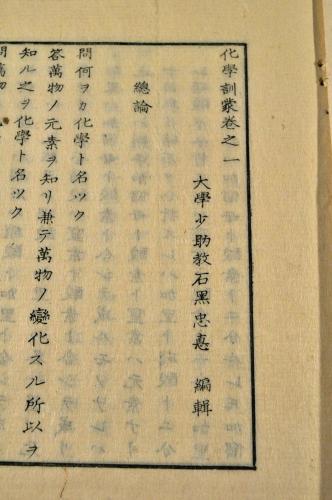 化學訓蒙卷之一
大學少助教石黑忠悳 編輯
總論
問何ヲカ化學ト名ツク
答萬物ノ元素ヲ知リ兼テ萬物ノ變化スル所以ヲ
知ル之ヲ化學ト名ツク
問萬物